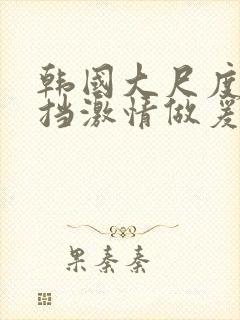 韩国大尺度
挡激情做爰
果秦秦